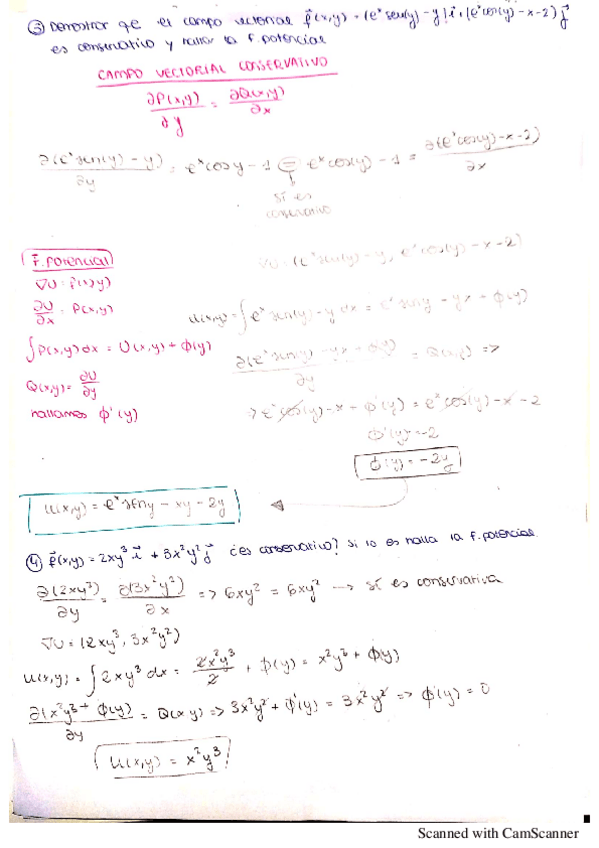 ③ Demostrar que el campo vectorial f(x,y) = (eˣ sen(y) - y) i + (eˣ cos(y) - x - 2) j
es conservativo y hallar la f. potencial
CAMPO VECTORIAL CONSERVATIVO
∂P(x,y)/∂y = ∂Q(x,y)/∂x
∂(eˣ sen(y) - y)/∂y = eˣ cos y - 1 = eˣ cos(y) - 1 = ∂(eˣ cos(y) - x - 2)/∂x
sí es
conservativo
F. potencial
∇U = f(x,y)
∂U/∂x = P(x,y)
∫P(x,y) dx = U(x,y) + ϕ(y)
Q(x,y) = ∂U/∂y
hallamos ϕ'(y)
∇U = (eˣ sen(y) - y, eˣ cos(y) - x - 2)
u(x,y) = ∫ eˣ sen(y) - y dx = eˣ sen y - yx + ϕ(y)
∂(eˣ sen(y) - yx + ϕ(y))/∂y = Q(x,y) =>
=> eˣ cos(y) - x + ϕ'(y) = eˣ cos(y) - x - 2
ϕ'(y) = -2
ϕ(y) = -2y
u(x,y) = eˣ sen y - xy - 2y
④ f(x,y) = 2xy³ i + 3x²y² j ¿es conservativo? Si lo es halla la f. potencial
∂(2xy³)/∂y = ∂(3x²y²)/∂x => 6xy² = 6xy² → sí es conservativa
∇U = (2xy³, 3x²y²)
u(x,y) = ∫ 2xy³ dx = 2x²y³/2 + ϕ(y) = x²y³ + ϕ(y)
∂(x²y³ + ϕ(y))/∂y = Q(x,y) => 3x²y² + ϕ'(y) = 3x²y² => ϕ'(y) = 0
u(x,y) = x²y³
Scanned with CamScanner